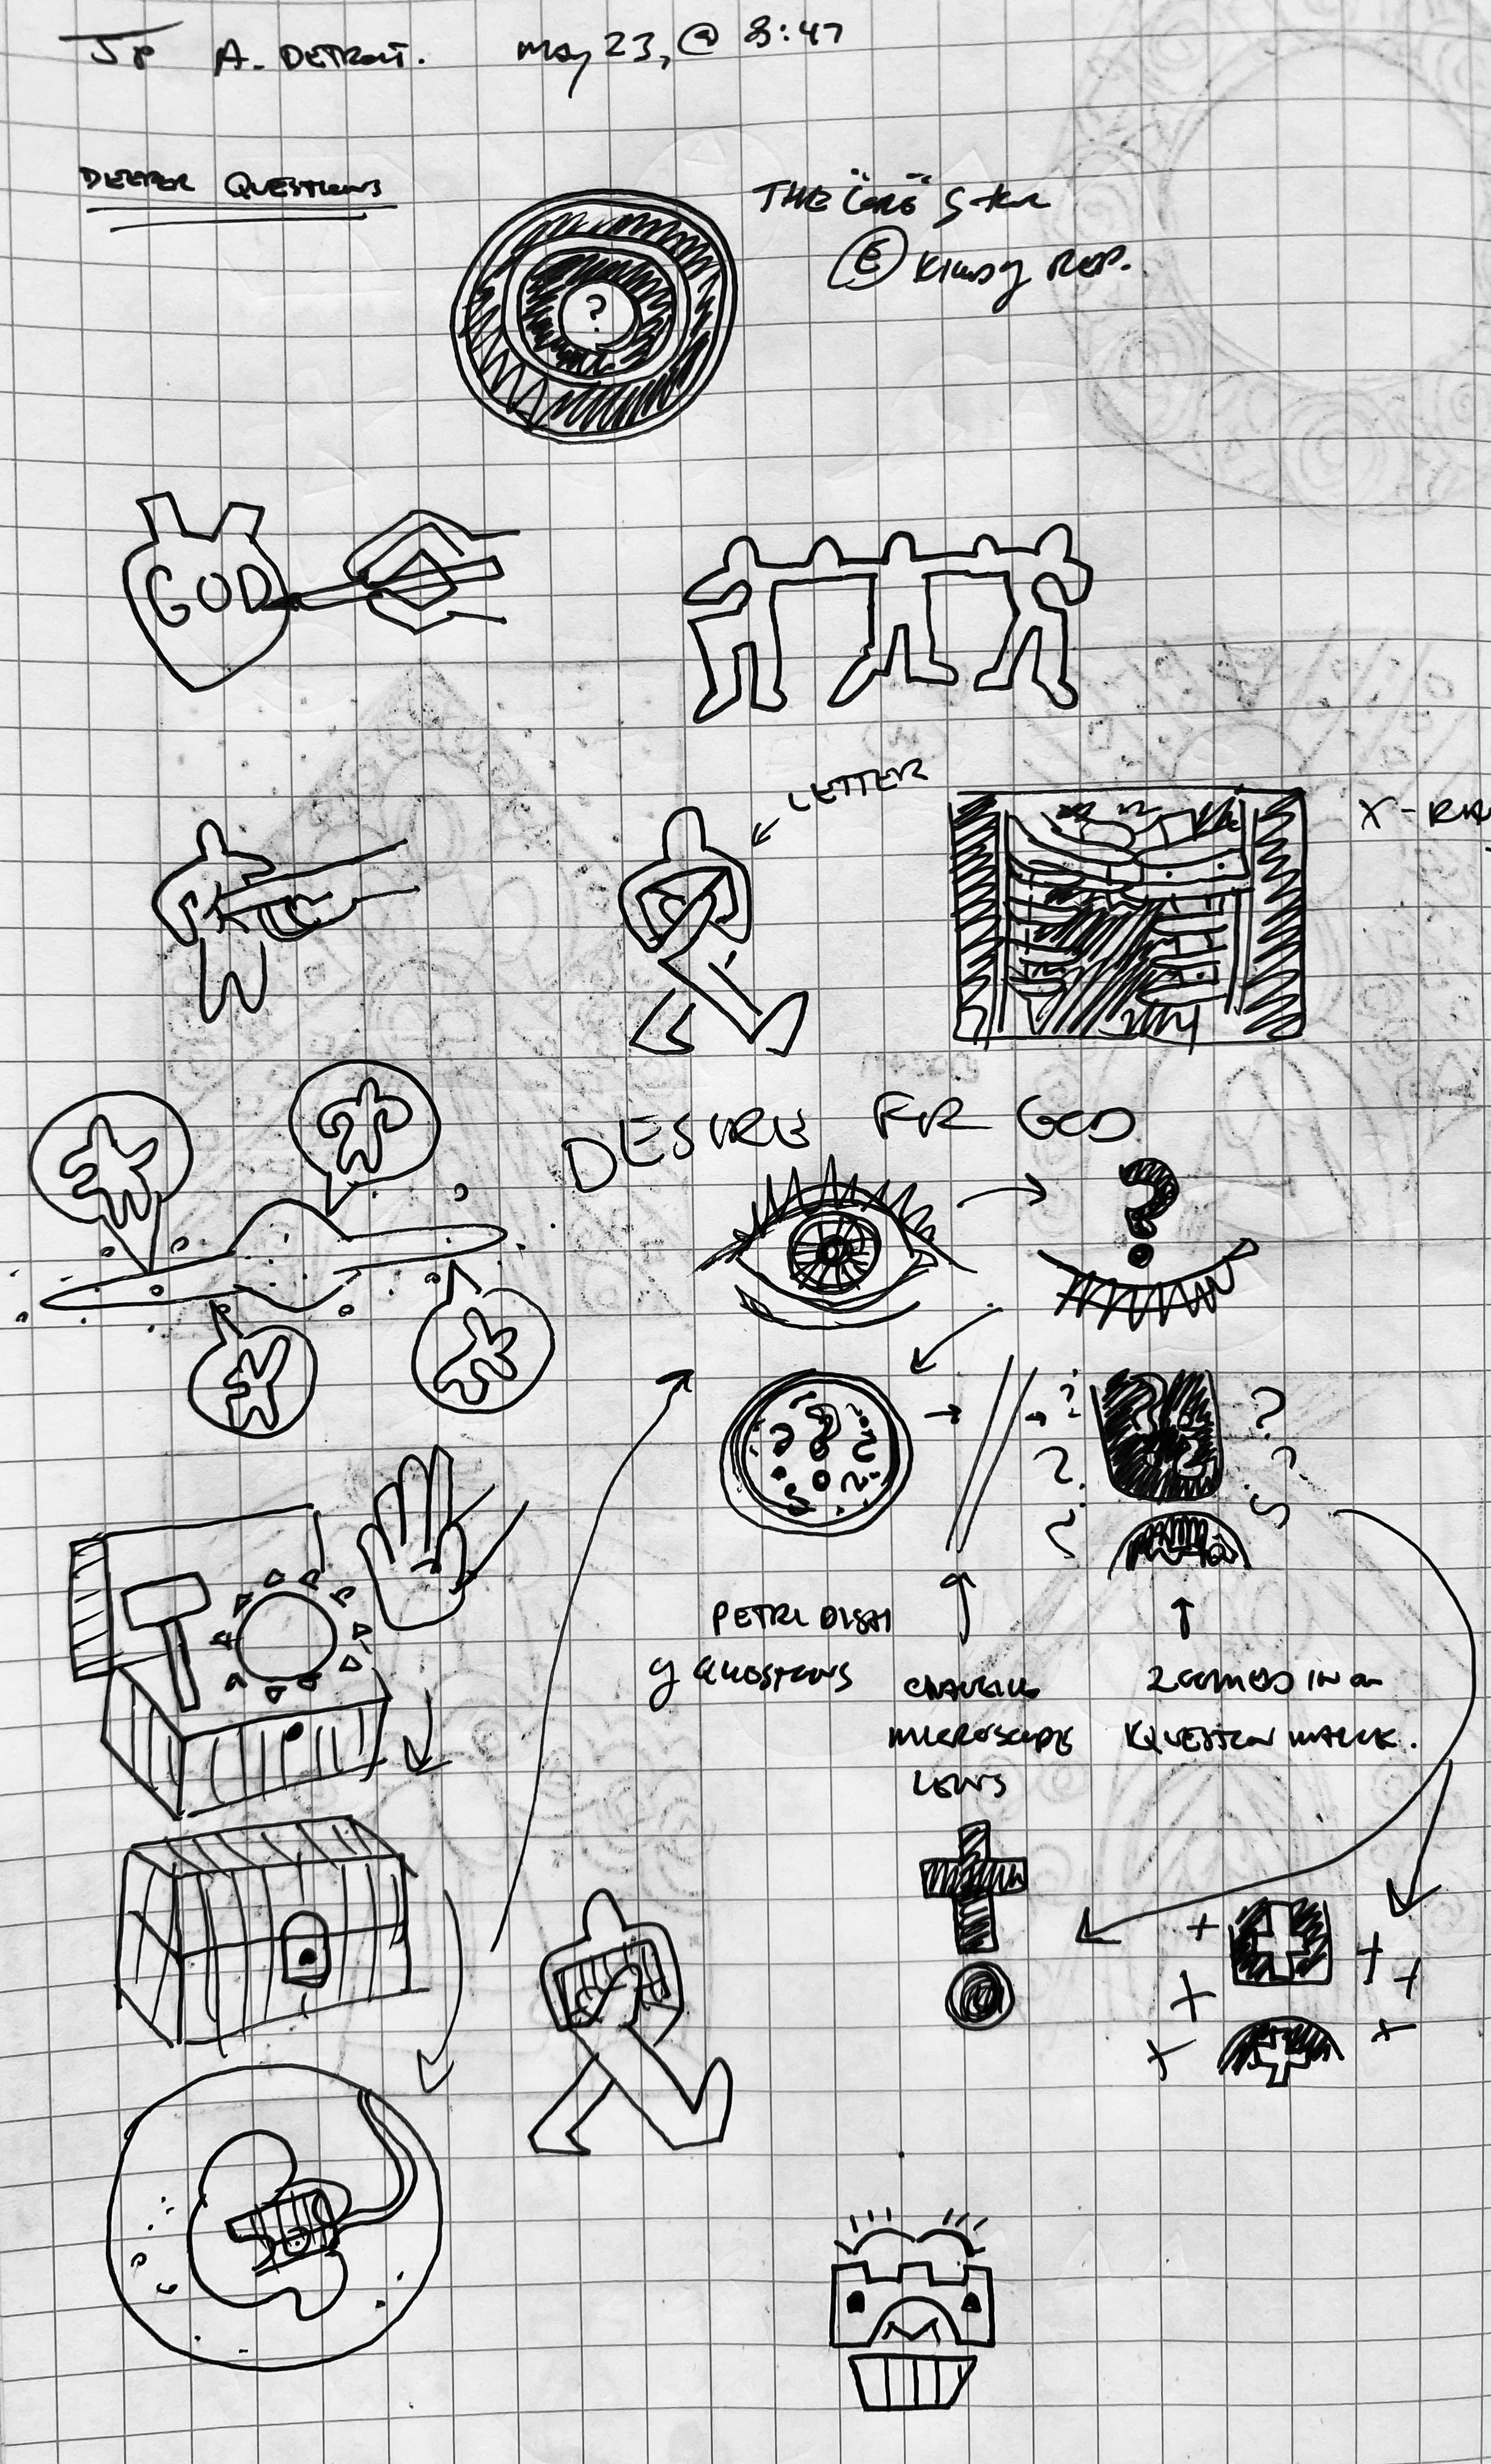 A. DETROIT. May 23, @ 8:47
DEEPER QUESTIONS
THE "CORE"
?
GOD
LETTER
X-RA
DESIRE FOR GOD
?
PETRI DISH
OF QUESTIONS
CHANGING
MICROSCOPE
LENS
ZOOMED IN ON
QUESTION MARK.